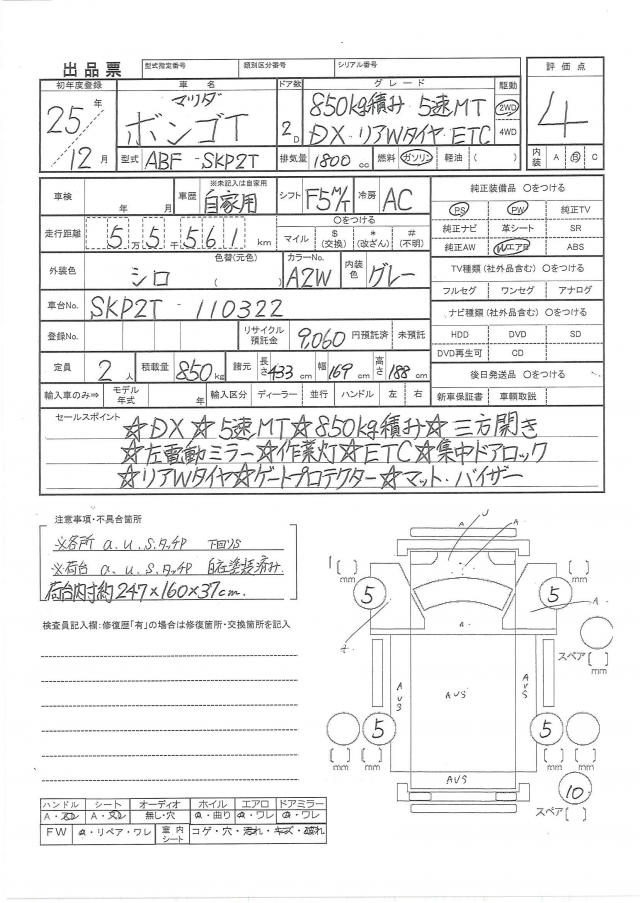 出品票
型式指定番号 類別区分番号 シリアル番号
初年度登録 車名 ドア数 グレード 駆動 評価点
25年 マツダ 850kg積み 5速MT 2WD 4
12月 ボンゴT 2D DX・リアWタイヤ・ETC 4WD
型式 ABF - SKP2T 排気量 1800 cc 燃料 ガソリン 軽油 ( ) 内装 A B C
車検 年 月 車歴 ※未記入は自家用 自家用 シフト F5M/T 冷房 AC 純正装備品 ○をつける
PS PW 純正TV
走行距離 5万5千561 km ○をつける マイル $(交換) *(改ざん) #(不明) 純正ナビ 革シート SR
純正AW Wエアロ ABS
外装色 シロ 色替(元色) ( ) カラーNo. A2W 内装色 グレー TV種類(社外品含む) ○をつける
フルセグ ワンセグ アナログ
車台No. SKP2T - 110322 ナビ種類(社外品含む) ○をつける
登録No. リサイクル預託金 9,060 円預託済 未預託 HDD DVD SD
DVD再生可 CD
定員 2人 積載量 850kg 諸元 長さ433cm 幅169cm 高さ188cm 後日発送品 ○をつける
輸入車のみ⇒ モデル年式 年 輸入区分 ディーラー 並行 ハンドル 左 右 新車保証書 車輌取説
セールスポイント
☆DX☆5速MT☆850kg積み☆三方開き
☆左電動ミラー☆作業灯☆ETC☆集中ドアロック
☆リアWタイヤ☆ゲートプロテクター☆マット・バイザー
注意事項・不具合箇所
※各所 a.u.s.タッチP 下回りS
※荷台 a.u.s.タッチP 自在塗装済み.
荷台内寸約247×160×37cm.
検査員記入欄:修復歴「有」の場合は修復箇所・交換箇所を記入
U
A
mm mm
5 5
A
A
スペア
mm
AUS AUS AUS
5 5
mm mm
AUS
10
スペア
ハンドル シート オーディオ ホイル エアロ ドアミラー
A・スレ A・スレ 無し・穴 a・曲り a・ワレ a・ワレ
FW a・リペア・ワレ 室内シート コゲ・穴・汚れ・キズ・破れ